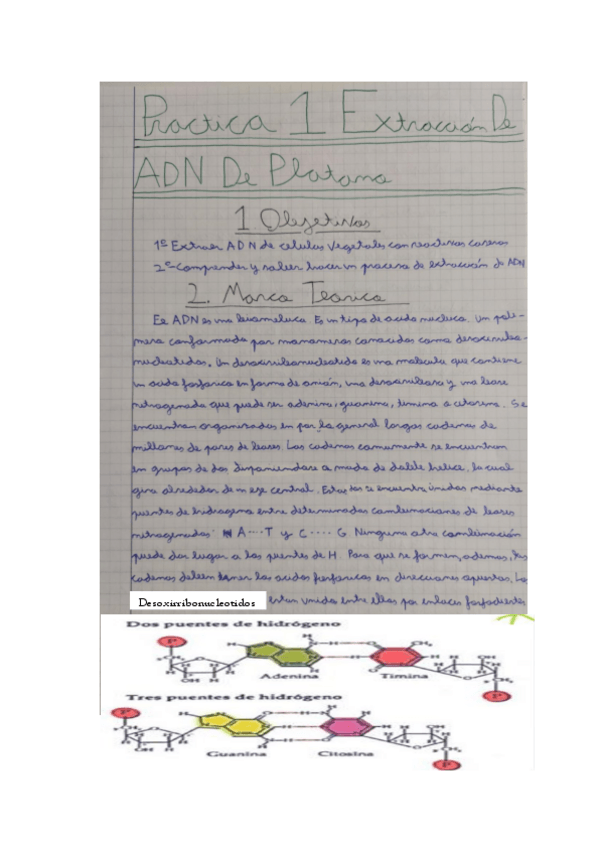 Practica 1 Extracción De
ADN De Platano
1 Objetivos
1º Extraer ADN de celulas vegetales con reactivos caseros
2º-Comprender y saber hacer un proceso de extracción de ADN
2. Marco Teorico
El ADN es una biomeluca. Es un tipo de acido nucleico. Un poli-
mero conformado por monomeros conocidos como desoxirribo-
nucleotidos. Un desoxirribonucleotido es una molecula que contiene
un acido fosforico en forma de anión, una desoxirribosa y una base
nitrogenada que puede ser adenina, guanina, timina o citosina. Se
encuentran organizados en por lo general largas cadenas de
millones de pares de bases. Las cadenas comunmente se encuentran
en grupos de dos disponiendose a modo de doble helice, la cual
gira alrededor de un eje central. Estas se encuentran unidas mediante
puentes de hidrogeno entre determinadas combinaciones de bases
nitrogenadas: A····T y C····G Ninguna otra combinación
puede dar lugar a los puentes de H. Para que se formen, ademas, las
cadenas deben tener los acidos fosforicos en direcciones opuestas. Los
Desoxirribonucleotidos estan unidos entre ellos por enlaces fosfodiester
Dos puentes de hidrógeno
Adenina Timina
Tres puentes de hidrógeno
Guanina Citosina